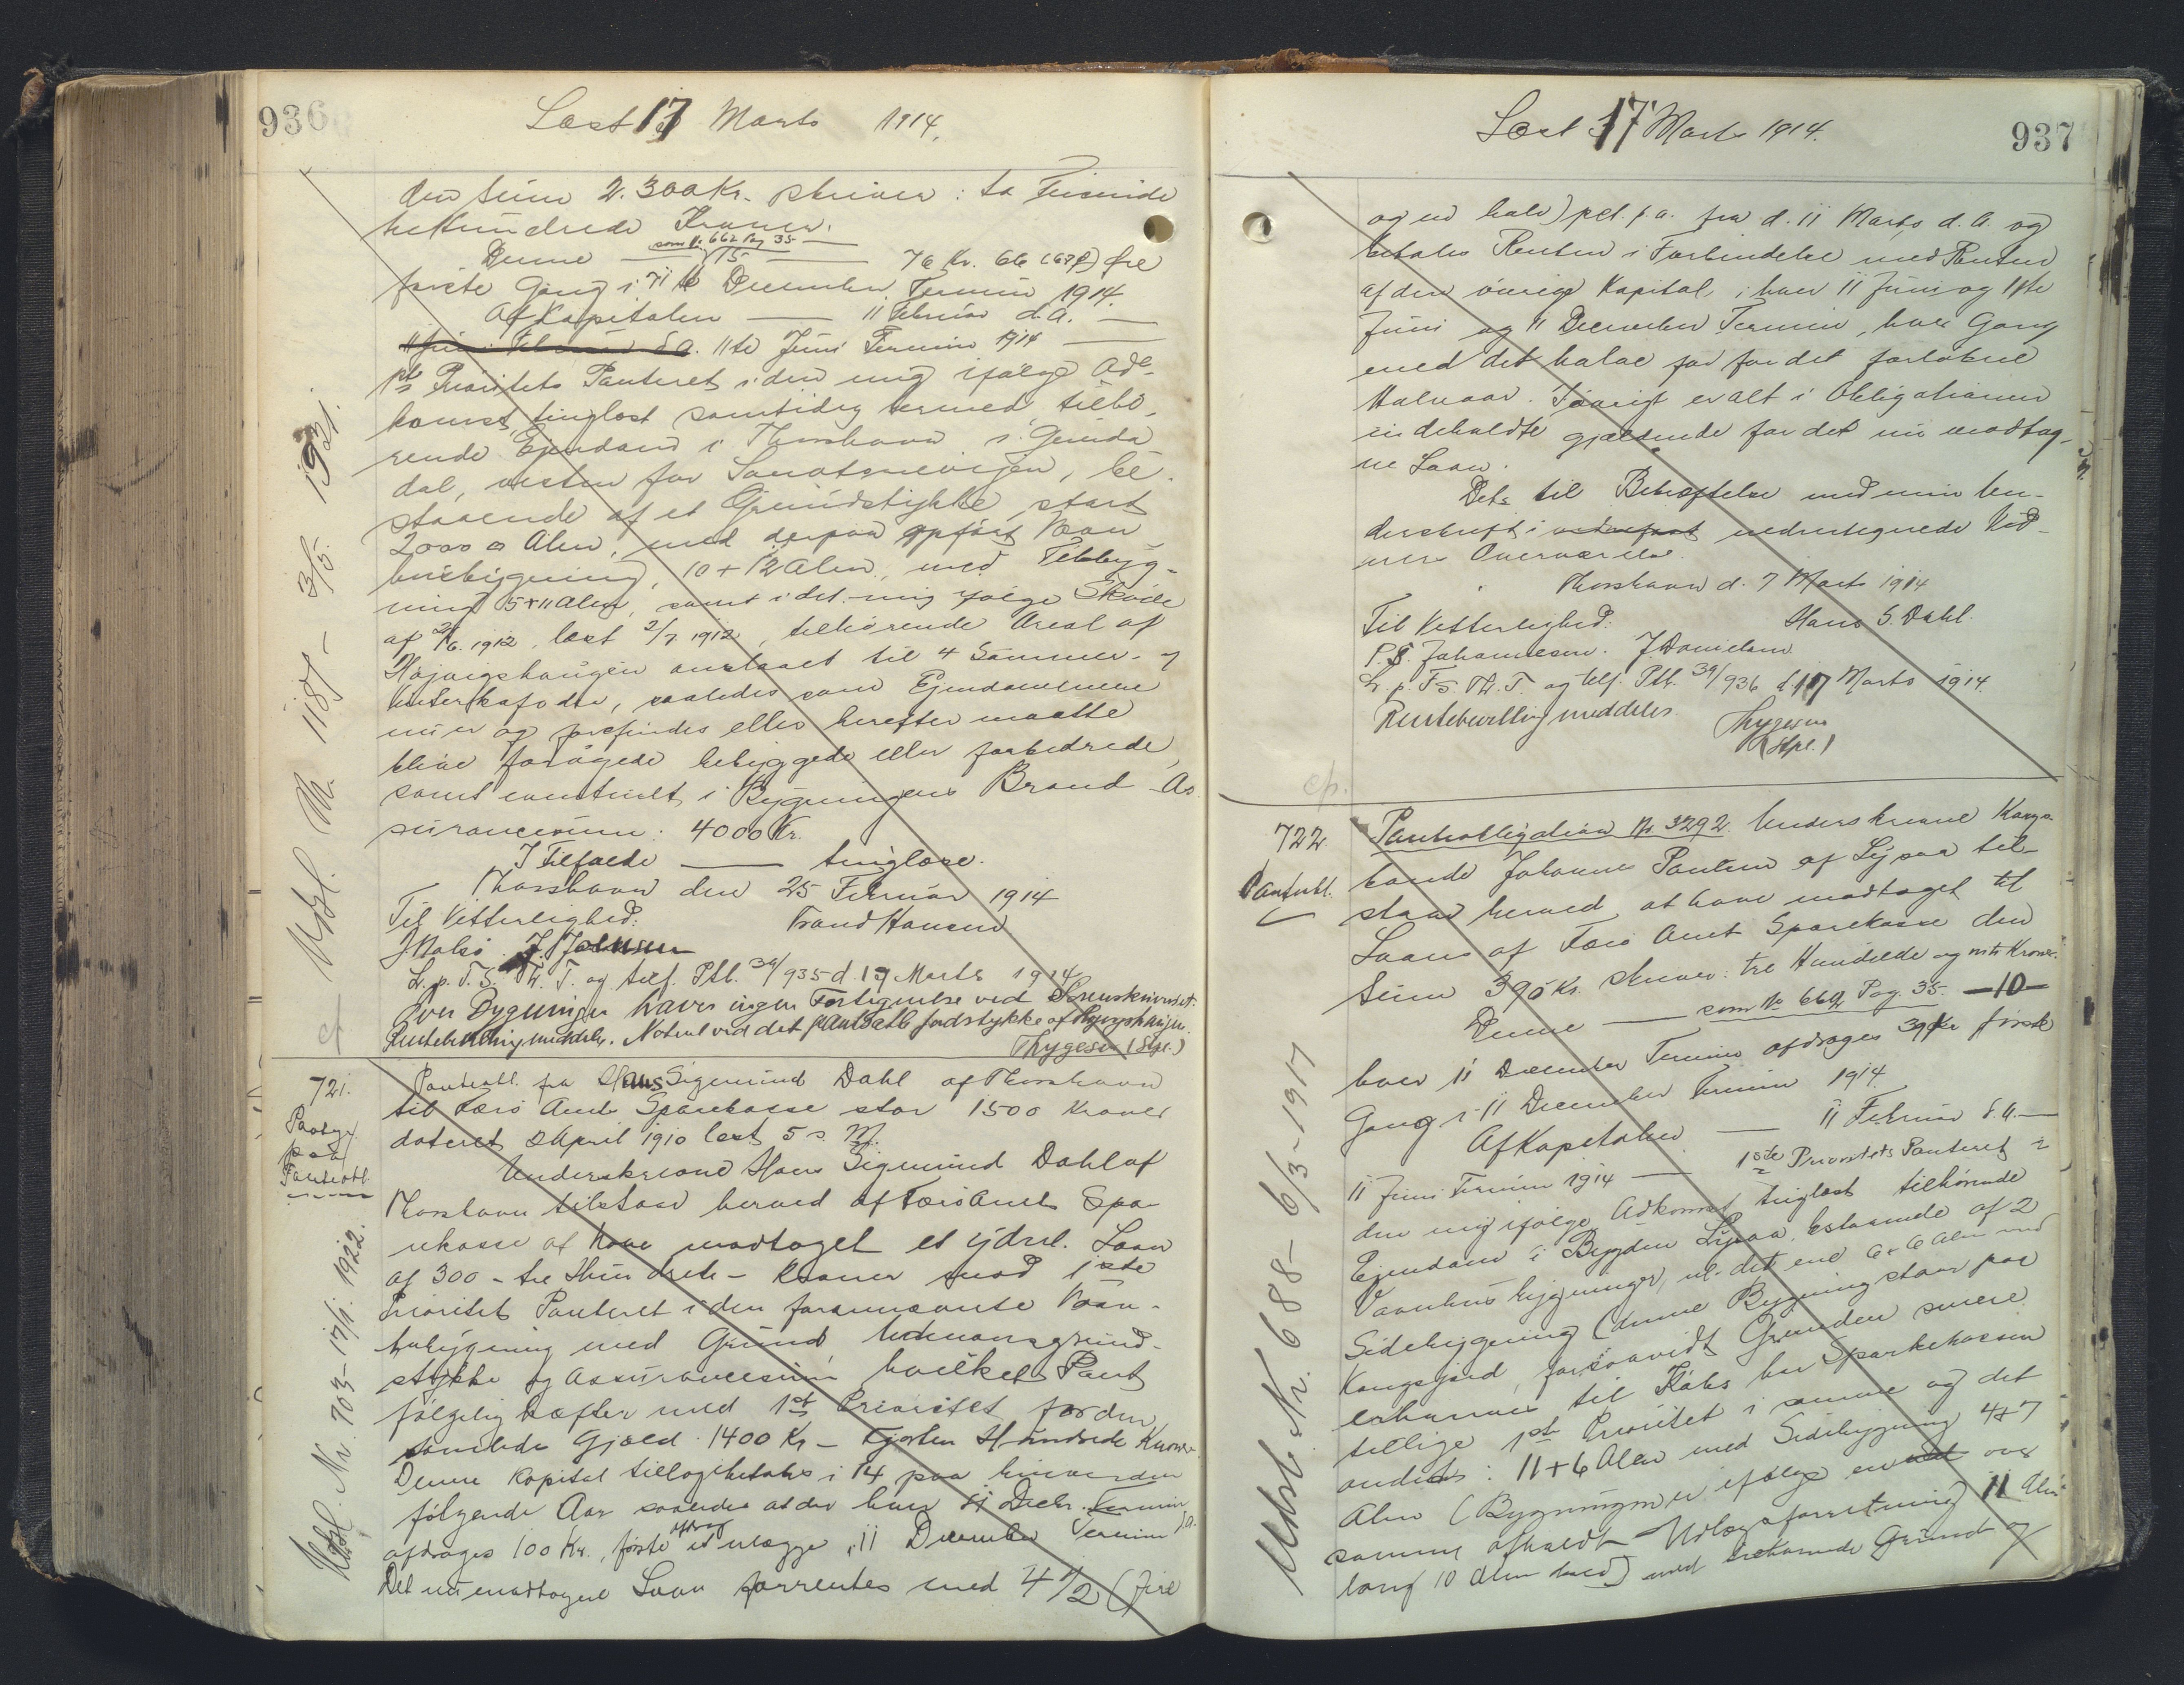 936
Læst 17 Marts 1914.
den Sum 2.300 Kr. skriver: to Tusinde
trehundrede Kroner.
som Nr. 662 Pag 35
Denne — 15 — 76 Kr. 66 (67 Ø) Øre
første Gang i 11 te December Termin 1914.
Af Kapitalen — 11 Februar d.A. —
11te Juni Termin 1914 —
1ste Prioritets Panteret i den mig ifølge Ad-
komst, tinglæst samtidig hermed tilhø-
rende Ejendom i Thorshavn i Gunda
dal, vesten for Sanatorievejen, be-
staaende af et Grundstykke, stort
2000 □ Alen, med derpaa opført Vaan
husbygning, 10 + 12 Alen, med Tilbyg-
ning 5 + 11 Alen, samt i det mig ifølge Skøde
af 24/6. 1912, læst 2/7 1912, tilhørende Areal af
Højvigshaugen anslaaet til 4 Sommer- og
Vinterkofoder, saaledes som Ejendommene
nu er og forefindes eller herefter maatte
blive forøgede bebyggede eller forbedrede,
samt eventuelt i Bygningens Brand-As-
surancesum: 4000 Kr.
I Tilfælde — tinglæse.
Thorshavn den 25 Februar 1914
Til Vitterlighed: Trand Hansen
J Walsø. J. Joensen
L. p. F. S. Th. T. og tilf. Ptb. 39/935 d. 17 Marts 1914
Over Bygningen haves ingen Fortegnelse ved Sorenskriveriet.
Rentebevilling meddeles. Noteret ved det pantsatte Jordstykke af Højvigshaugen.
Thygesen (Stpl.)
Udsl. Nr. 1187 - 3/5. 1921.
cf
721.
Paategn.
paa
Panteobl.
Panteobl. fra Hans Sigemund Dahl af Thorshavn
til Færø Amts Sparekasse stor 1500 Kroner
dateret 2 April 1910 læst 5 s. M.
Underskrevne Hans Sigmund Dahl af
Thorshavn tilstaar herved af Færø Amts Spa-
rekasse at have modtaget et yderl. Laan
af 300 - tre Hundrede - Kroner mod 1ste
Prioritet Panteret i den forannævnte Vaan-
husbygning med Grund, Udmarksgrund-
stykke og Assurancesum hvilket Pant
følgelig hæfter med 1ste Prioritet for den
samlede Gjæld 1400 Kr — Fjorten Hundrede Kroner
Denne Kapital tilbagebetales i 14 paa hinanden
følgende Aar saaledes at der hver 11 Decbr. Termin
afdrages 100 Kr., første Afdrag at erlægge i 11 December Termin d.A.
Det nu modtagne Laan forrentes med 4 1/2 (fire
Udsl. Nr. 703 - 17/1. 1922.
937
Læst 17 Marts 1914.
og en halv) pct. p.a. fra d. 11 Marts d.A. og
betales Renten i Forbindelse med Renten
af den øvrige Kapital, i hver 11 Juni og 11te
Juni og 11 December Termin, hver Gang
med det halve for det forløbne
Halvaar. Iøvrigt er alt i Obligationen
indeholdte gjældende for det nu modtag-
ne Laan.
Dette til Bekræftelse med min Un-
derskrift i nedentegnede Vid-
ners Overværelse.
Thorshavn d. 7 Marts 1914
Til Vitterlighed: Hans S. Dahl.
P. S. Johannesen. J Danielsen
L. p. F S. Th. T. og tilf. Ptb. 39/936 d. 17 Marts 1914.
Rentebevilling meddeles. Thygesen
(Stpl.)
cf.
722
Panteobl.
Panteobligation Nr. 3292. Underskrevne Kongs-
bonde Johannes Poulsen af Lejnaa til-
staar herved at have modtaget til
Laans af Færø Amt Sparekasse den
Sum 390 Kr. skriver: tre Hundrede og niti Kroner.
Denne — som Nr 662 Pag. 35 — 10 —
hver 11 December Termin afdrages 39 Kr første
Gang i 11 December Termin 1914.
Af Kapitalen — 11 Februar d.A. —
11 Juni Termin 1914 — 1ste Prioritets Panteret i
den mig ifølge Adkomst tinglæst tilhørende
Ejendom i Bygden Lejnaa, bestaaende af 2
Vaanhusbygninger, nl. det ene 6 + 6 Alen med
Sidebygning (denne Bygning staar paa
Kongsjord, forsaavidt Grunden senere
erhverves til Købs har Sparekassen
tillige 1ste Prioritet i samme og det
andet: 11 + 6 Alen med Sidebygning 4 + 7
Alen (Bygningen er ifølge en over
samme afholdt Udlægsforretning 11 Alen
lang 10 Alen bred) med tilhørende Grund og
Udsl. Nr. 688 - 6/3 - 1917